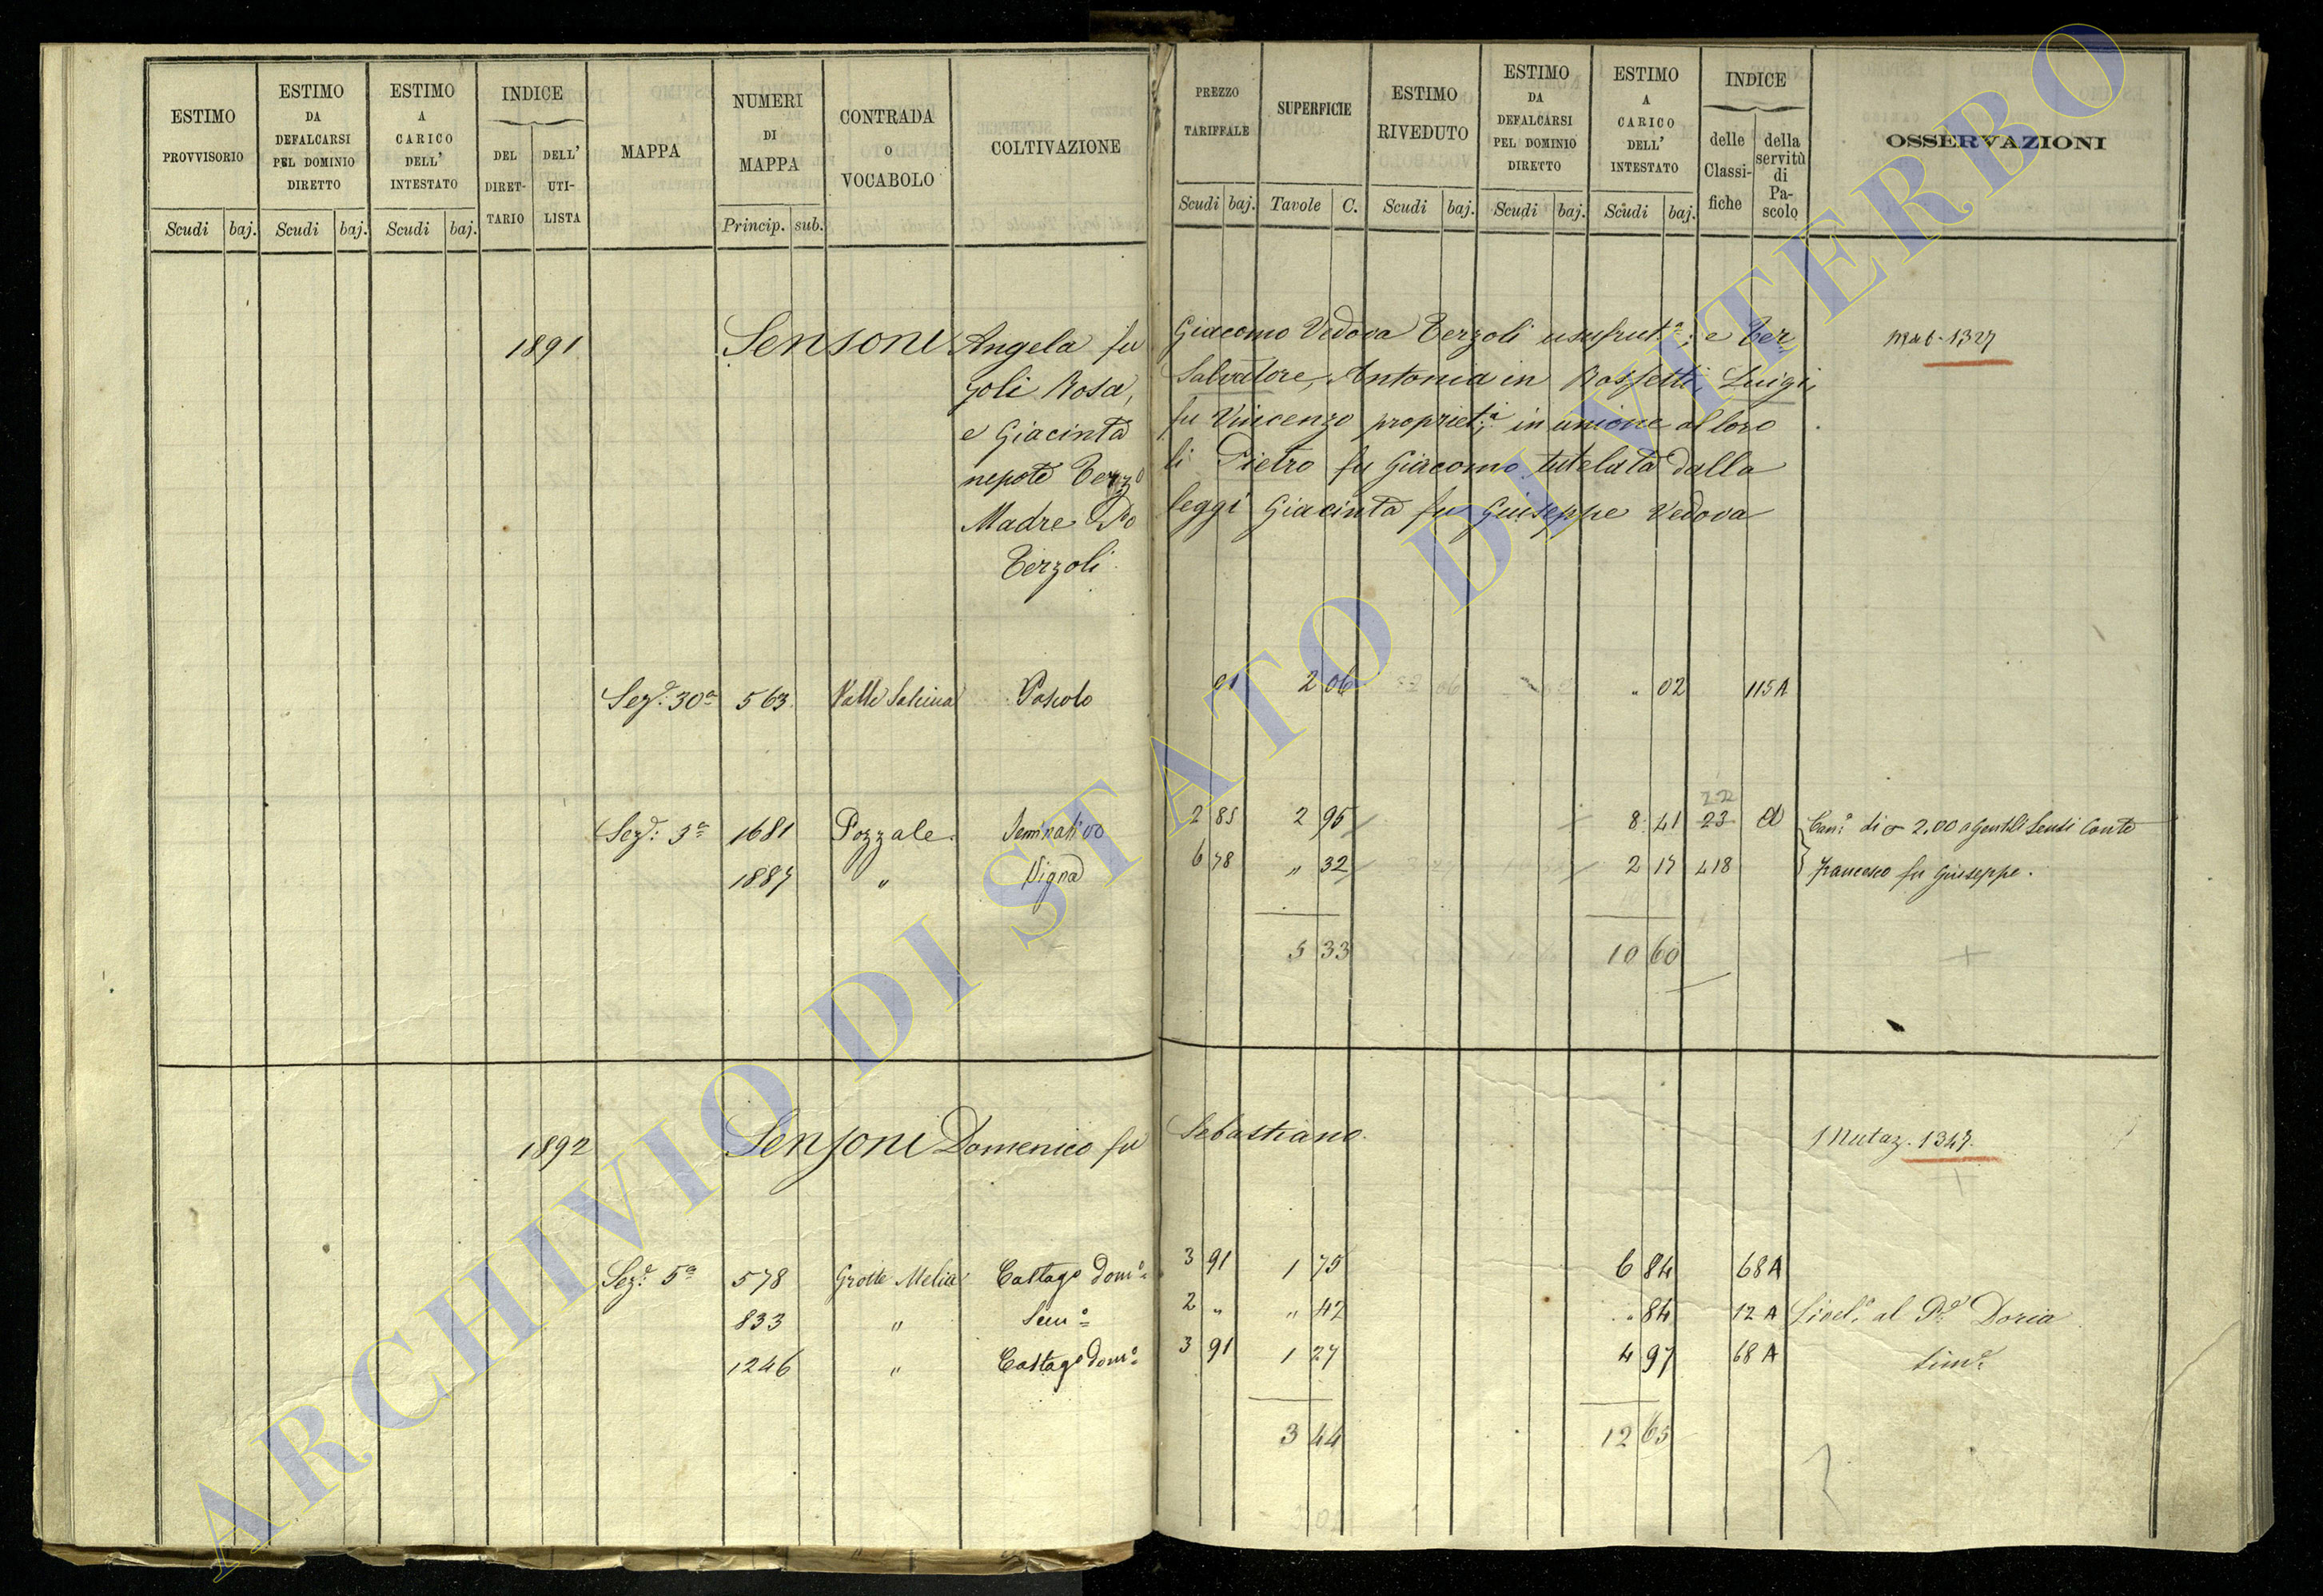 ESTIMO PROVVISORIO
ESTIMO DA DEFALCARSI PEL DOMINIO DIRETTO
ESTIMO A CARICO DELL' INTESTATO
INDICE
DEL DIRET-TARIO
DELL' UTI-LISTA
MAPPA
NUMERI DI MAPPA
CONTRADA O VOCABOLO
COLTIVAZIONE
PREZZO TARIFFALE
SUPERFICIE
ESTIMO RIVEDUTO
ESTIMO DA DEFALCARSI PEL DOMINIO DIRETTO
ESTIMO A CARICO DELL' INTESTATO
INDICE
delle Classi-fiche
della servitù di Pa-scolo
OSSERVAZIONI
Scudi baj. Scudi baj. Scudi baj. Princip. sub. Scudi baj. Tavole C. Scudi baj. Scudi baj. Scudi baj.
1891 Sensoni Angela fu Giacomo Vedova Terzoli usufrut.a; e Ter
zoli Rosa, Salvatore, Antonia in Rossetti, Luigi,
e Giacinta fu Vincenzo propriet.i in unione al loro
nepote Terzo li Pietro fu Giacomo tutelata dalla
Madre Po leggi Giacinta fu Giuseppe Vedova
Terzoli
1327
Sez.e 30a 563 Valle Pascolo 01 2 06 " 02 115A
22
Sez.e 3a 1681 Pozzale Seminativo 2 85 2 95 8 41 23 a Can.e di 2.00 a Gentili Conte
1887 " Vigna 6 78 " 32 2 17 418 Francesco fu Giuseppe.
5 33 10 60
1892 Sensoni Domenico fu Sebastiano Mutaz. 1347
Sez.e 5a 578 Grotte Melia Castag.o dom.o 3 91 1 75 6 84 68 A
833 " Sem.o 2 " " 42 " 84 12 A Livel.o al P.e Doria
1246 " Castag.o dom.o 3 91 1 27 4 97 68 A
3 44 12 65
ARCHIVIO DI STATO DI VITERBO